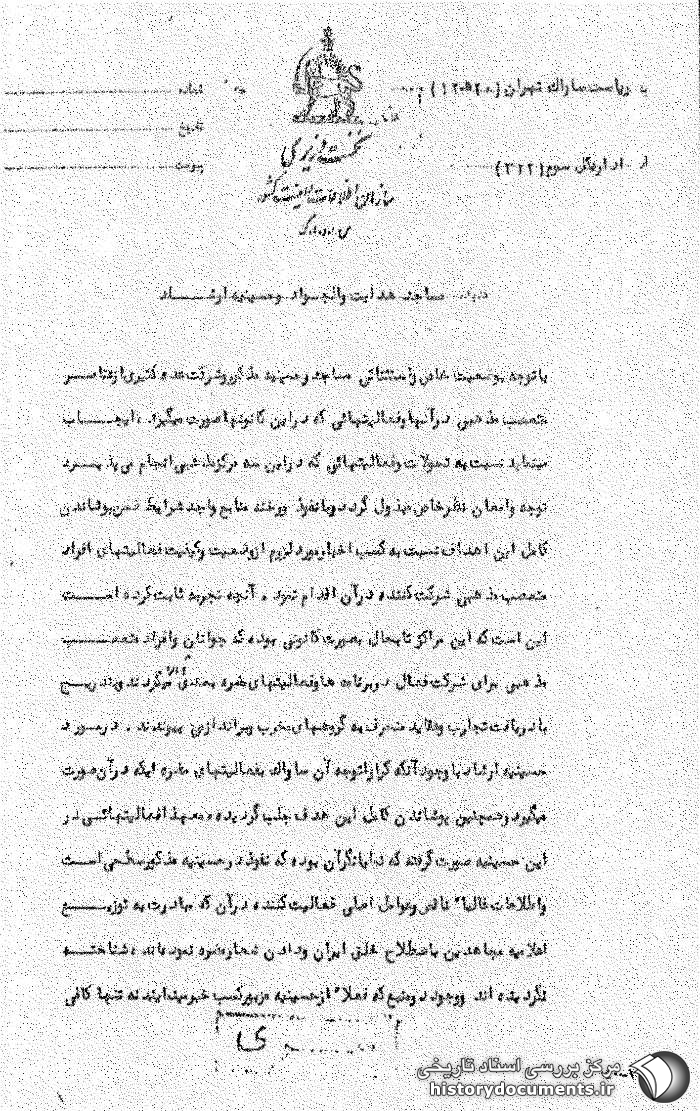 به ریاست ساواک تهران (۱۲۰ ۵۲۰)
شماره
تاریخ
از اداره کل سوم (۳۱۲)
پیوست
نخست وزیری
سازمان اطلاعات و امنیت کشور
س.ا.و.ا.ک
مساجد هدایت والجواد وحسینیه ارشاد
با توجه بوضعیت خاص و استثنائی مساجد و حسینیه مذکور و شرکت عده کثیری از عناصر
متعصب مذهبی در آنها و فعالیتهائی که در این کانونها صورت میگیرد ، ایجاب
مینماید نسبت به تحولات و فعالیتهائی که در این سه مرکز مذهبی انجام می پذیرد
توجه و امعان نظر خاص مبذول گردد و با نفوذ و رخنه منابع واجد شرایط ضمن پوشاندن
کامل این اهداف نسبت به کسب اخبار مورد لزوم از وضعیت و کیفیت فعالیتهای افراد
متعصب مذهبی شرکت کننده در آن اقدام نمود . آنچه تجربه ثابت کرده است
این است که این مراکز تا بحال بصورت کانونی بوده که جوانان و افراد متعصب
مذهبی برای شرکت فعال در برنامه ها و فعالیتهای مضره بعدی میگردند و بتدریج
با دریافت تجارب و عقاید منحرف به گروههای مخرب و برانداز می پیوندند . در مورد
حسینیه ارشاد با وجود آنکه کرارا توجه آن ساواک بفعالیتهای مضره ایکه در آن صورت
میگیرد و همچنین پوشاندن کامل این هدف جلب گردیده معهذا فعالیتهائی در
این حسینیه صورت گرفته که نمایانگر آن بوده که نفوذ در حسینیه مذکور سطحی است
و اطلاعات غالباً ناقص و عوامل اصلی فعالیت کننده در آن که مبادرت به توزیع
اعلامیه مجاهدین باصطلاح خلق ایران و دادن شعار مضره نموده اند ، شناخته
نگردیده اند و وجود دو منبع که فعلاً از حسینیه مزبور کسب خبر مینمایند نه تنها کافی
ی
مرکز بررسی اسناد تاریخی
historydocuments.ir